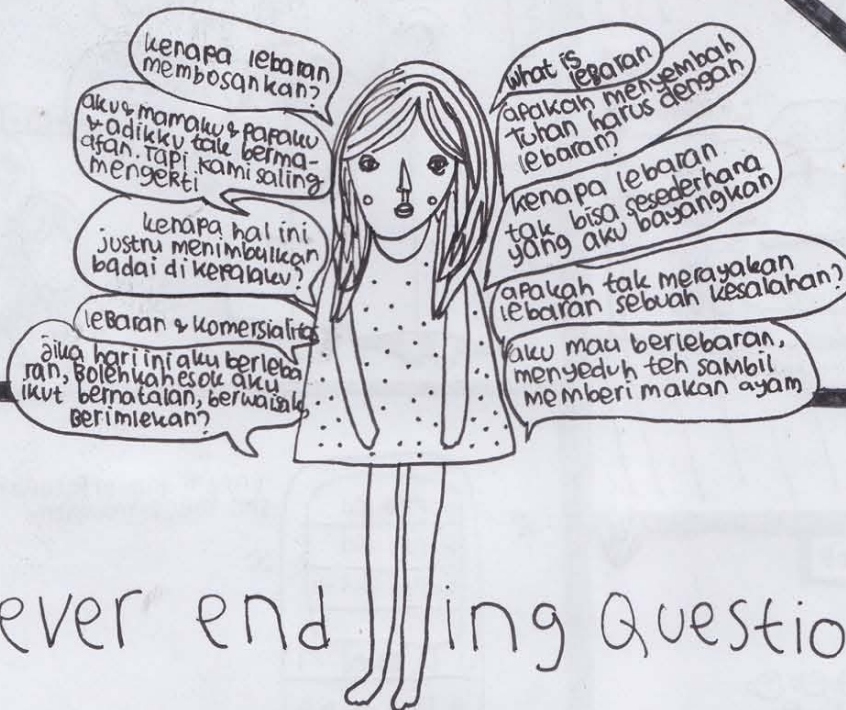 kenapa lebaran
membosankan?
aku & mamaku & papaku
& adikku tak berma-
afan. Tapi kami saling
mengerti
kenapa hal ini
justru menimbulkan
badai di kepalaku?
lebaran & komersialitas
Jika hari ini aku berleba
ran, Bolehkah esok aku
ikut bernatalan, berwaisak,
Berimlekan?
What is
lebaran
apakah menyembah
tuhan harus dengan
lebaran?
kenapa lebaran
tak bisa sesederhana
yang aku bayangkan
apakah tak merayakan
lebaran sebuah kesalahan?
aku mau berlebaran,
menyeduh teh sambil
memberi makan ayam
ever end ing Questio